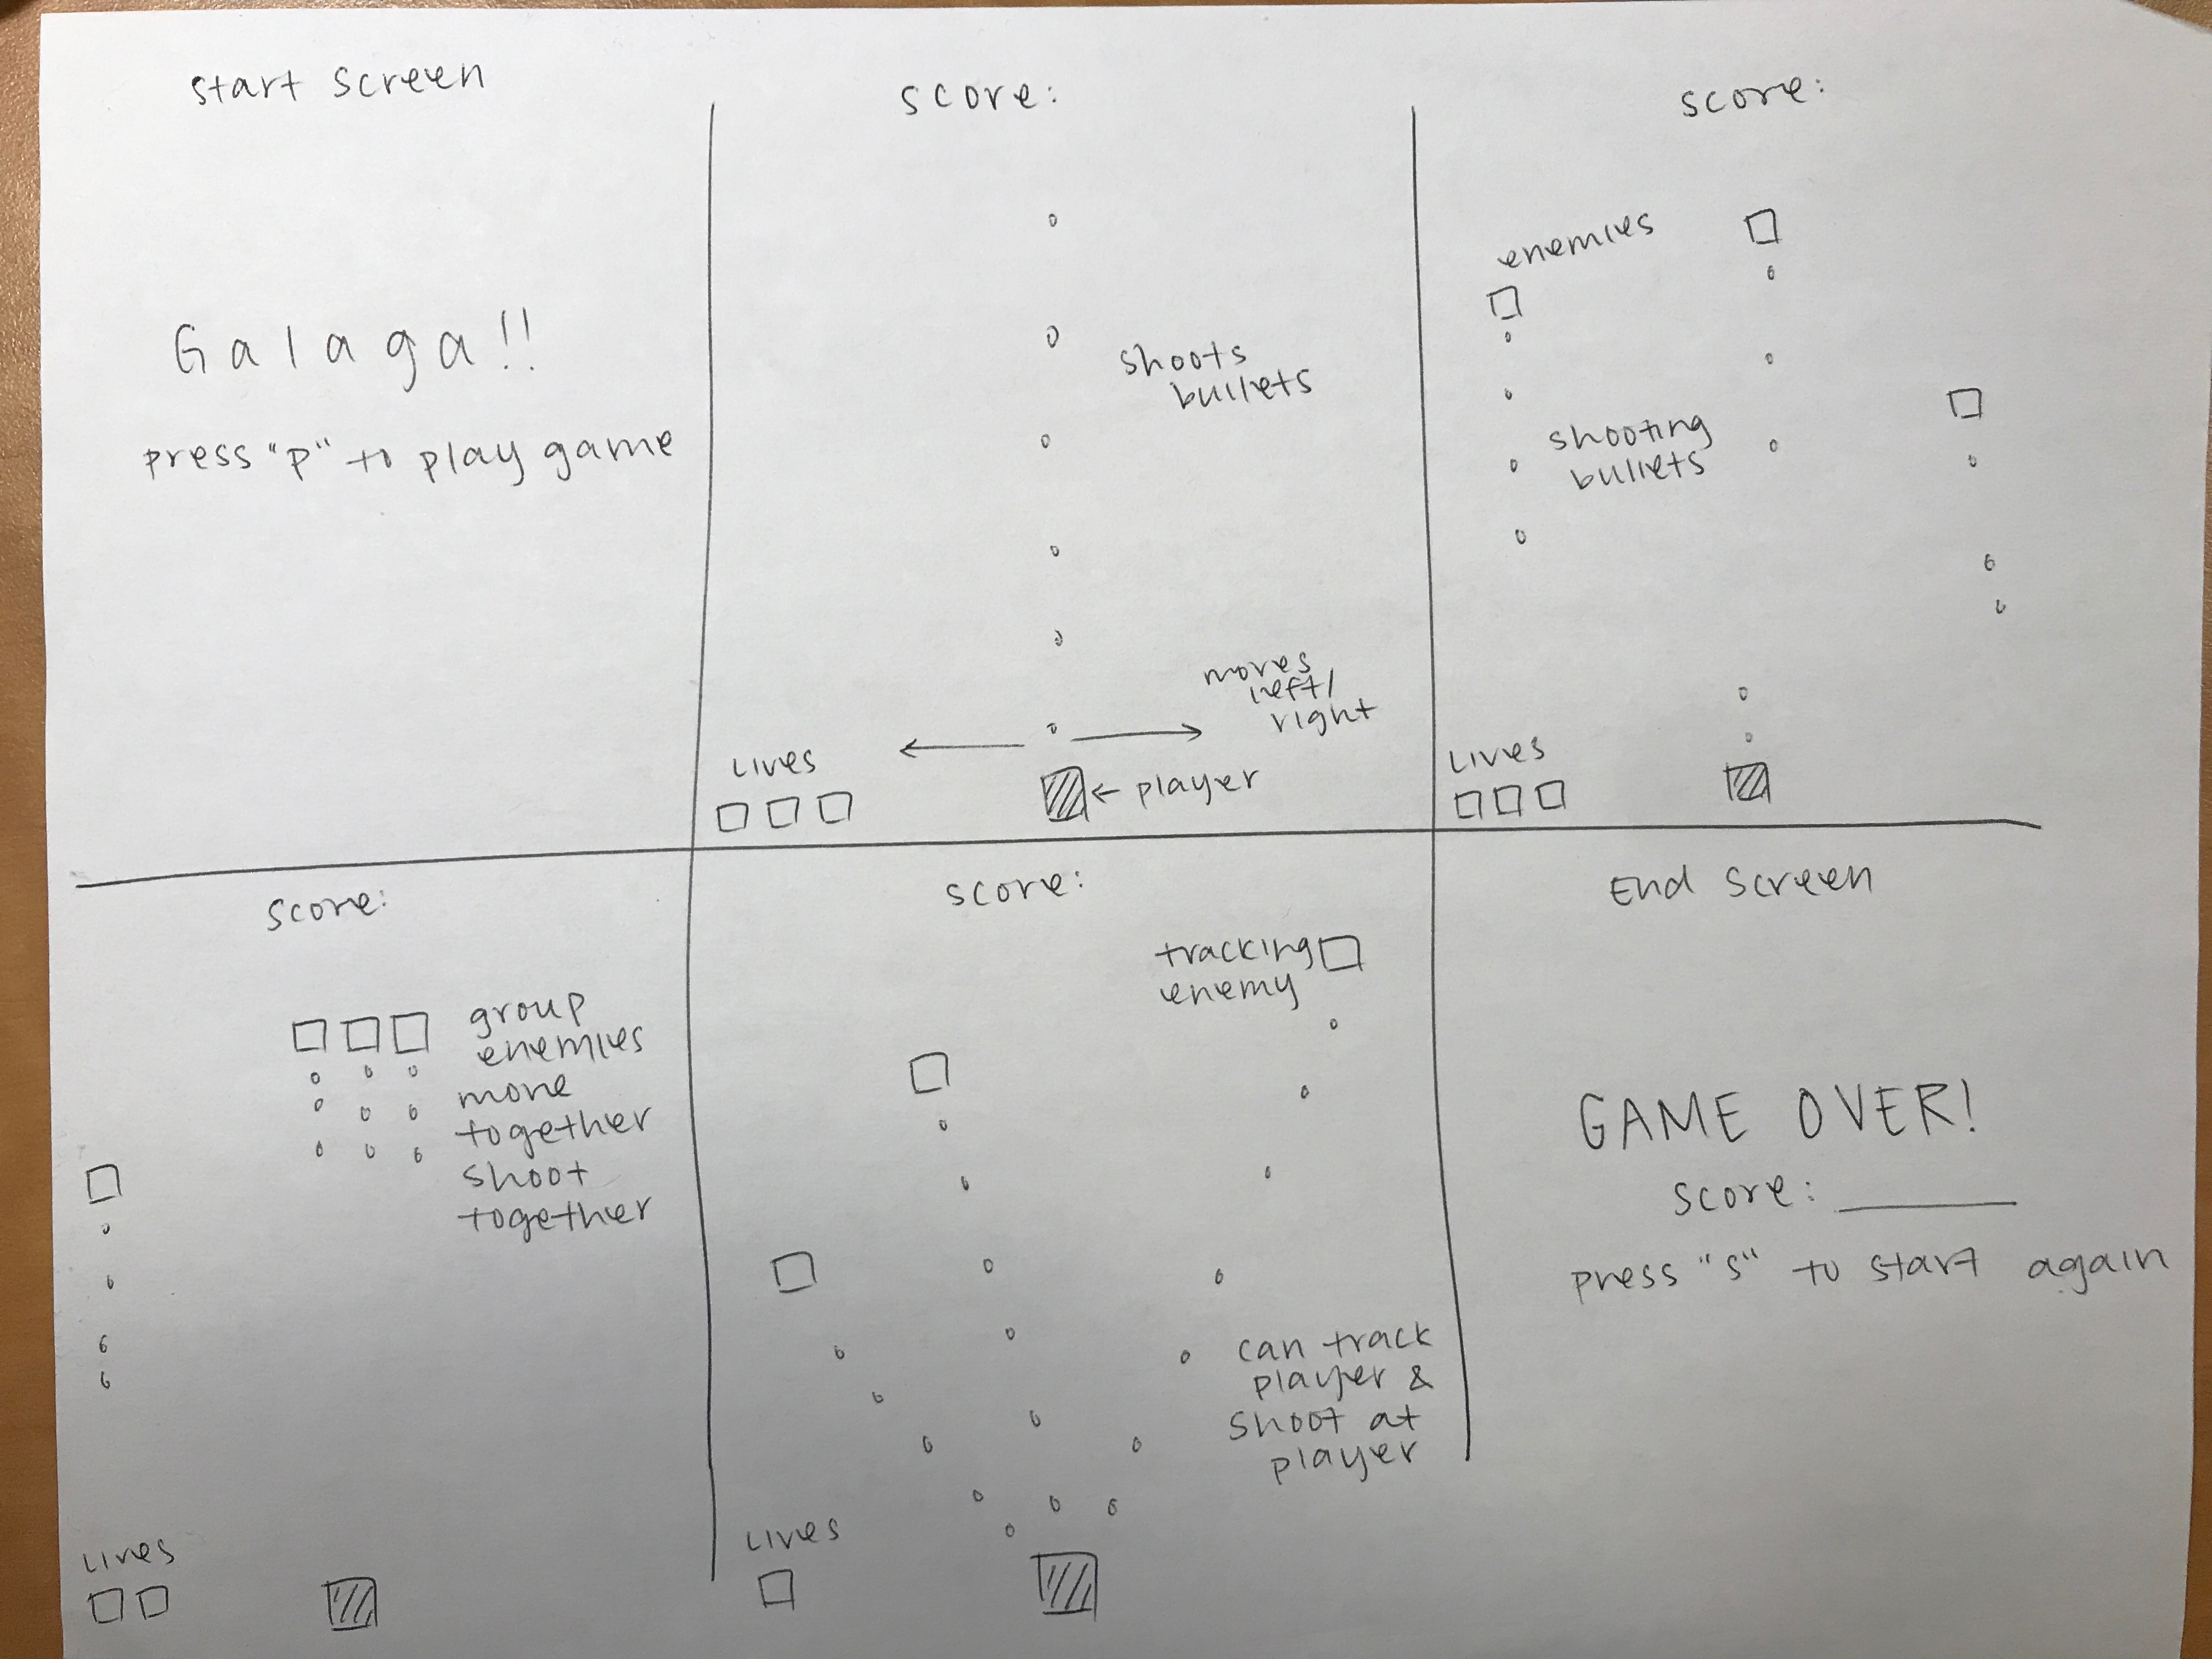 Start Screen
Galaga!!
press "p" to play game
score:
shoots
bullets
moves
left/
right
Lives
← player
score:
enemies
shooting
bullets
Lives
score:
group
enemies
move
together
shoot
together
Lives
score:
tracking
enemy
can track
player &
shoot at
player
Lives
End Screen
GAME OVER!
score: ______
press "s" to start again